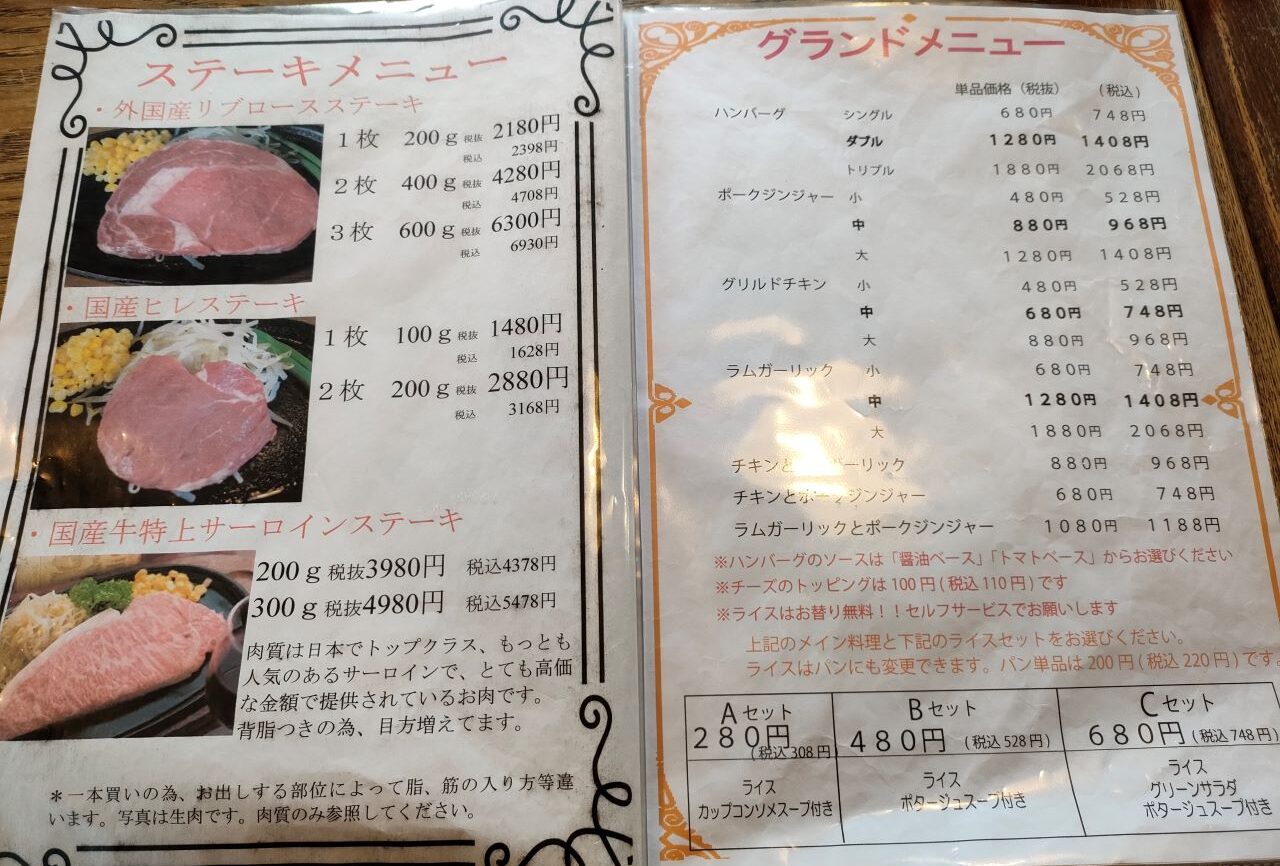 ステーキメニュー
・外国産リブロースステーキ
1枚 200g 税抜 2180円
税込 2398円
2枚 400g 税抜 4280円
税込 4708円
3枚 600g 税抜 6300円
税込 6930円
・国産ヒレステーキ
1枚 100g 税抜 1480円
税込 1628円
2枚 200g 税抜 2880円
税込 3168円
・国産牛特上サーロインステーキ
200g税抜3980円 税込4378円
300g税抜4980円 税込5478円
肉質は日本でトップクラス、もっとも
人気のあるサーロインで、とても高価
な金額で提供されているお肉です。
背脂つきの為、目方増えてます。
*一本買いの為、お出しする部位によって脂、筋の入り方等違
います。写真は生肉です。肉質のみ参照してください。
グランドメニュー
単品価格（税抜） （税込）
ハンバーグ シングル 680円 748円
ダブル 1280円 1408円
トリプル 1880円 2068円
ポークジンジャー 小 480円 528円
中 880円 968円
大 1280円 1408円
グリルドチキン 小 480円 528円
中 680円 748円
大 880円 968円
ラムガーリック 小 680円 748円
中 1280円 1408円
大 1880円 2068円
チキンと ーリック 880円 968円
チキンとポークジンジャー 680円 748円
ラムガーリックとポークジンジャー 1080円 1188円
※ハンバーグのソースは「醤油ベース」「トマトベース」からお選びください
※チーズのトッピングは100円(税込110円)です
※ライスはお替り無料！！セルフサービスでお願いします
上記のメイン料理と下記のライスセットをお選びください。
ライスはパンにも変更できます。パン単品は200円(税込220円)です。
Aセット
280円
(税込308円)
ライス
カップコンソメスープ付き
Bセット
480円 (税込528円)
ライス
ポタージュスープ付き
Cセット
680円(税込748円)
ライス
グリーンサラダ
ポタージュスープ付き